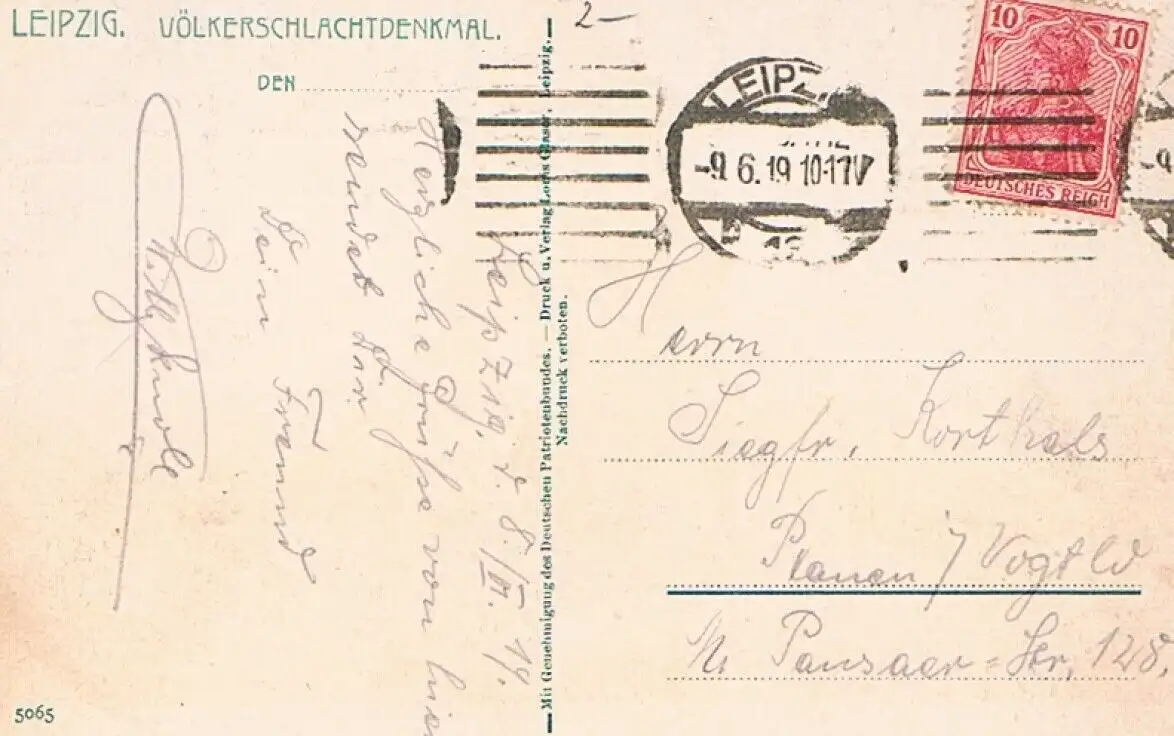 LEIPZIG. VÖLKERSCHLACHTDENKMAL.
2-
DEN
Leipzig, d. 8./VI. 19.
Herzliche Grüße von hier
sendet Dir
Dein Freund
Willy
Mit Genehmigung des Deutschen Patriotenbundes. — Druck u. Verlag Louis Glaser, Leipzig.
Nachdruck verboten.
LEIPZ
-9.6.19 10-11V
10 10
DEUTSCHES REICH
Herrn
Siegfr. Korthals
Plauen / Vogtld
Pausaer-Str. 128.
5065